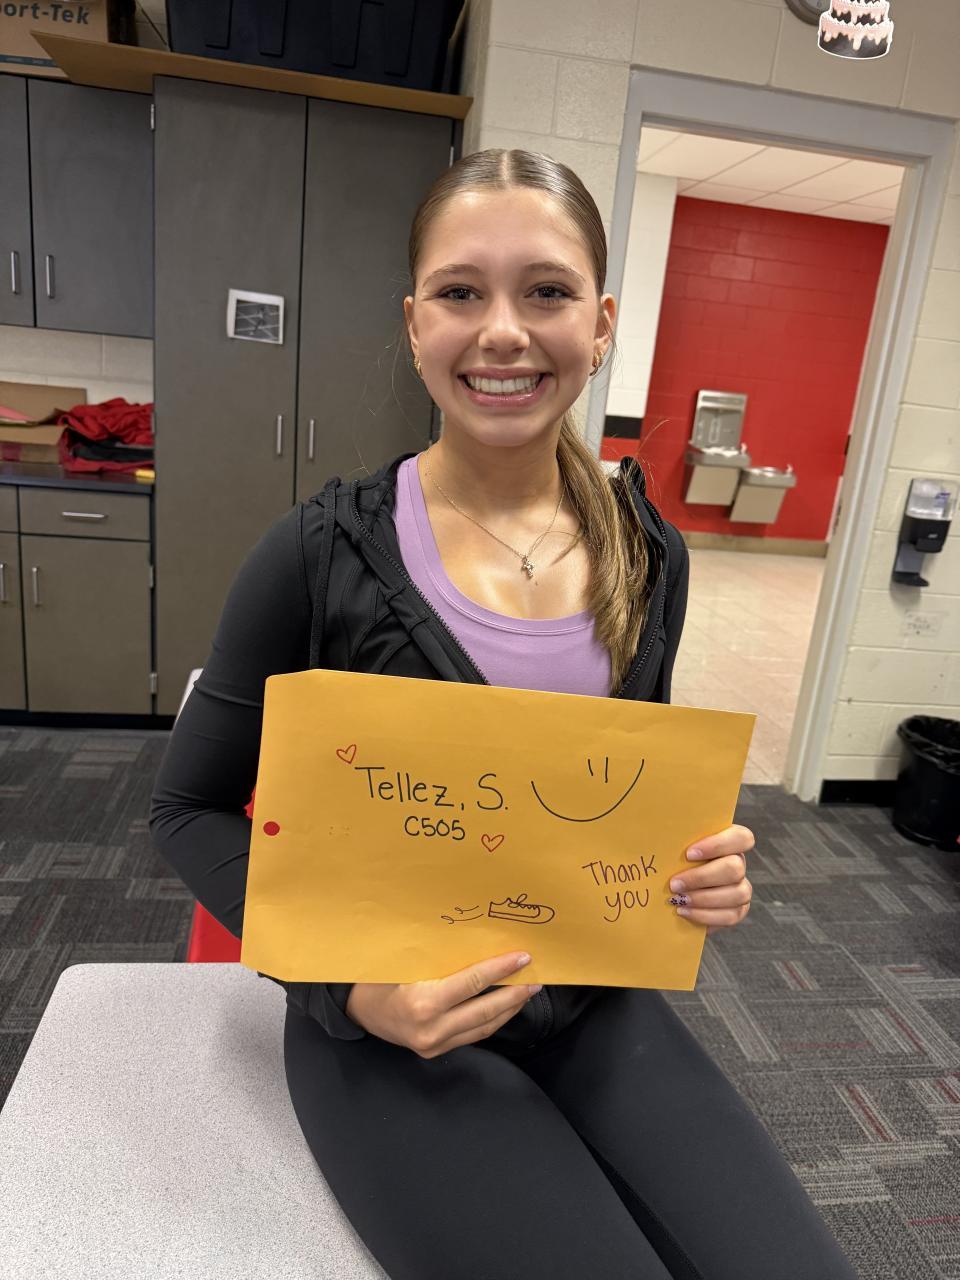 port-Tek
Tellez, S.
C505
Thank
you